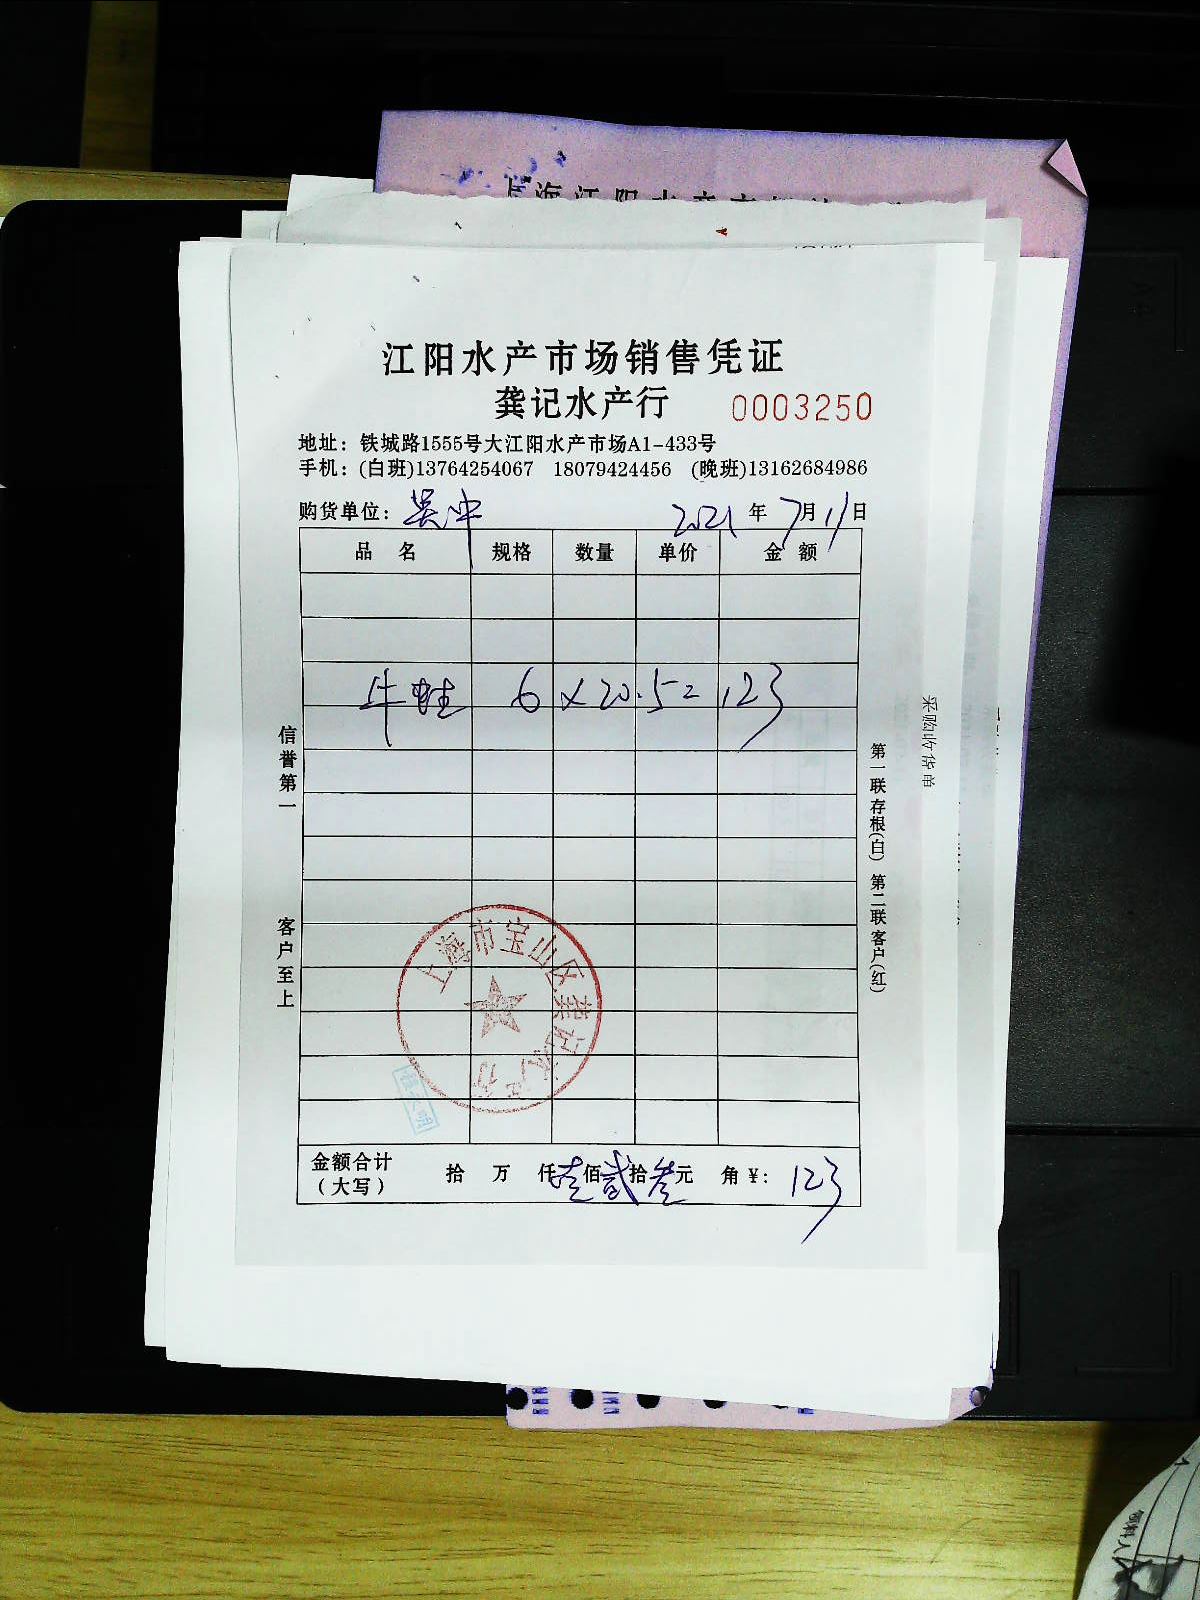 江阳水产市场销售凭证
龚记水产行 0003250
地址：铁城路1555号大江阳水产市场A1-433号
手机：(白班)13764254067 18079424456 (晚班)13162684986
购货单位：吴冲 2021年7月11日
品名 规格 数量 单价 金额
牛蛙 6×20.5=123
信誉第一 客户至上
第一联存根(白) 第二联客户(红)
采购收货单
上海市宝山区龚记水产行
金额合计（大写） 拾 万 仟壹佰贰拾叁元 角¥：123
领料人